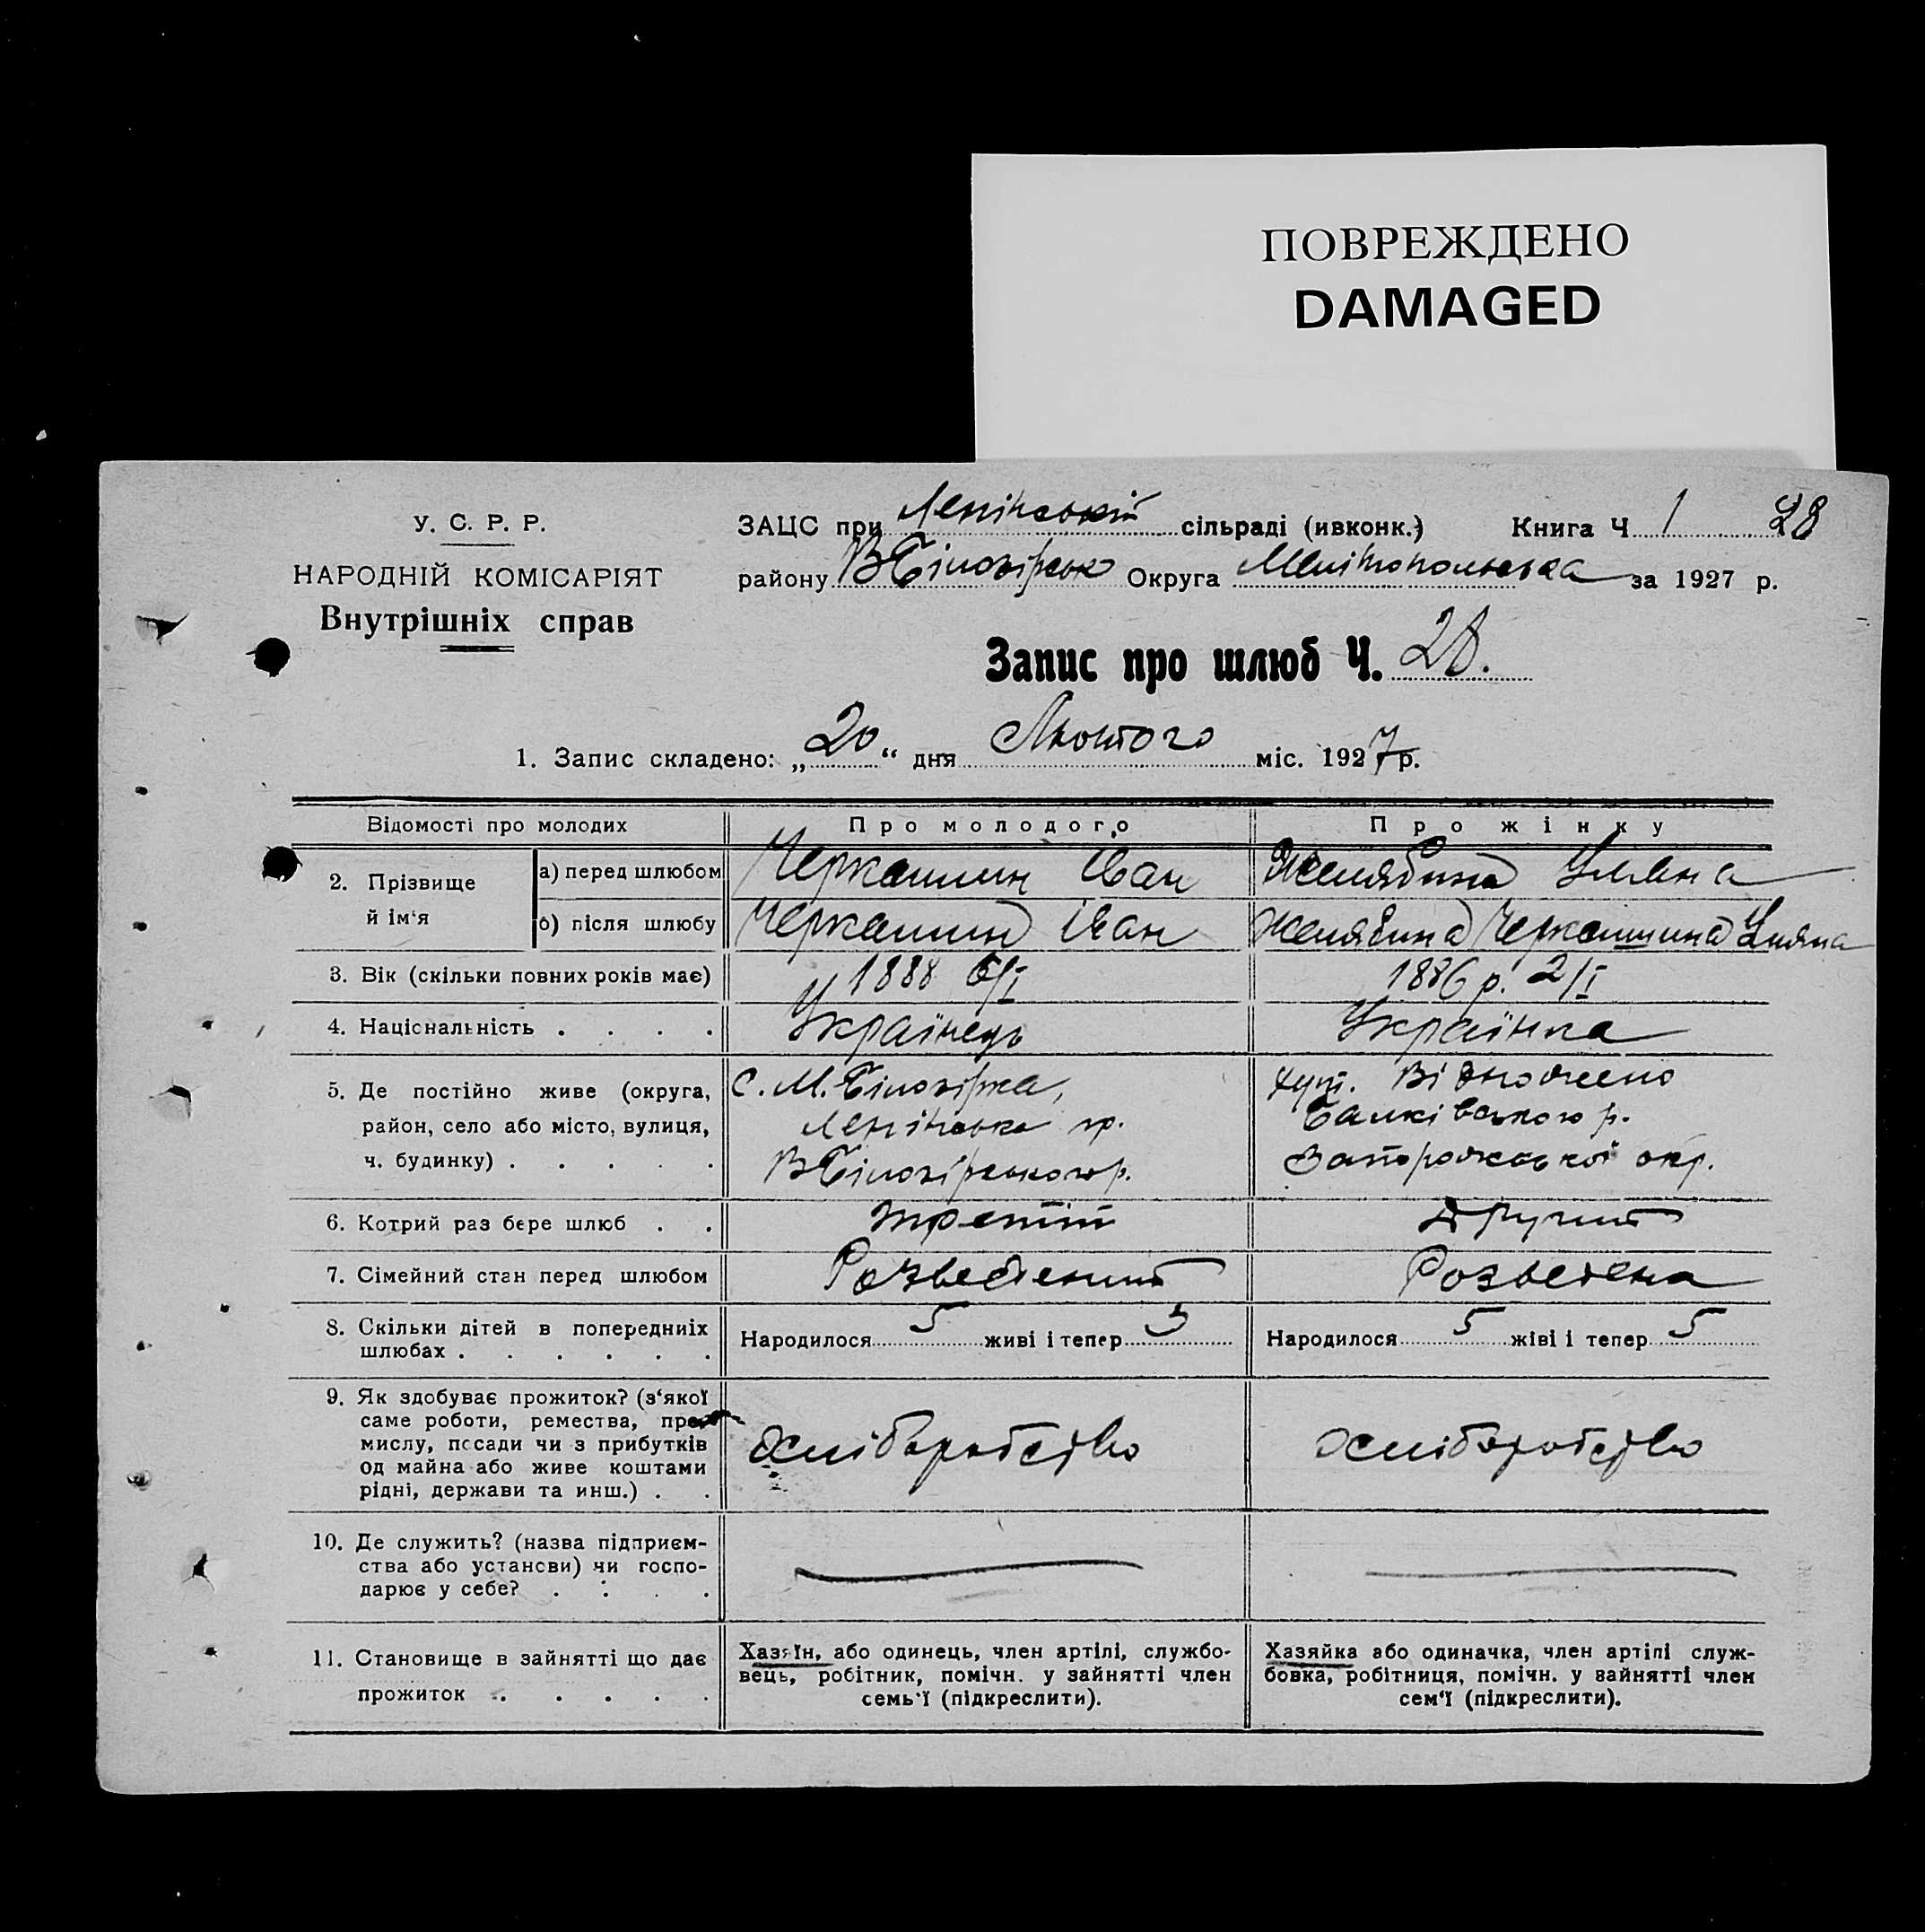 ПОВРЕЖДЕНО
DAMAGED
У. С. Р. Р.
НАРОДНІЙ КОМІСАРІЯТ
Внутрішніх справ
ЗАЦС при Ленінській сільраді (ивконк.) Книга Ч 1 28
району ВБілозірськ Округа Мелітопольська за 1927 р.
Запис про шлюб Ч. 28.
1. Запис складено: „20“ дня Лютого міс. 1927 р.
Відомості про молодих Про молодого Про жінку
2. Прізвище й ім‘я
а) перед шлюбом Черкашин Іван Желябина Уляна
б) після шлюбу Черкашин Іван Желябина Черкашина Уляна
3. Вік (скільки повних років має) 1888 6/I 1886 р. 2/I
4. Національність . . . . Українець Українка
5. Де постійно живе (округа, С. М. Білозірка, хут. Відножено
район, село або місто, вулиця, Ленінська
ч. будинку) . . . . . ВБілозірського р. Запорожської окр.
6. Котрий раз бере шлюб . . третій Другий
7. Сімейний стан перед шлюбом Розведений Розведена
8. Скільки дітей в попередниіх Народилося 5 живі і тепер 5 Народилося 5 жіві і тепер 5
шлюбах . . . . . .
9. Як здобуває прожиток? (з‘якої
саме роботи, ремества, про-
мислу, посади чи з прибутків хліборобство хліборобство
од майна або живе коштами
рідні, держави та инш.) . .
10. Де служить? (назва підприєм-
ства або установи) чи госпо-
дарює у себе? . . . .
11. Становище в зайнятті що дає
прожиток . . . . .
Хазяїн, або одинець, член артілі, службо-
вець, робітник, помічн. у зайнятті член
семь‘ї (підкреслити).
Хазяйка або одиначка, член артілі служ-
бовка, робітниця, помічн. у зайнятті член
сем‘ї (підкреслити).